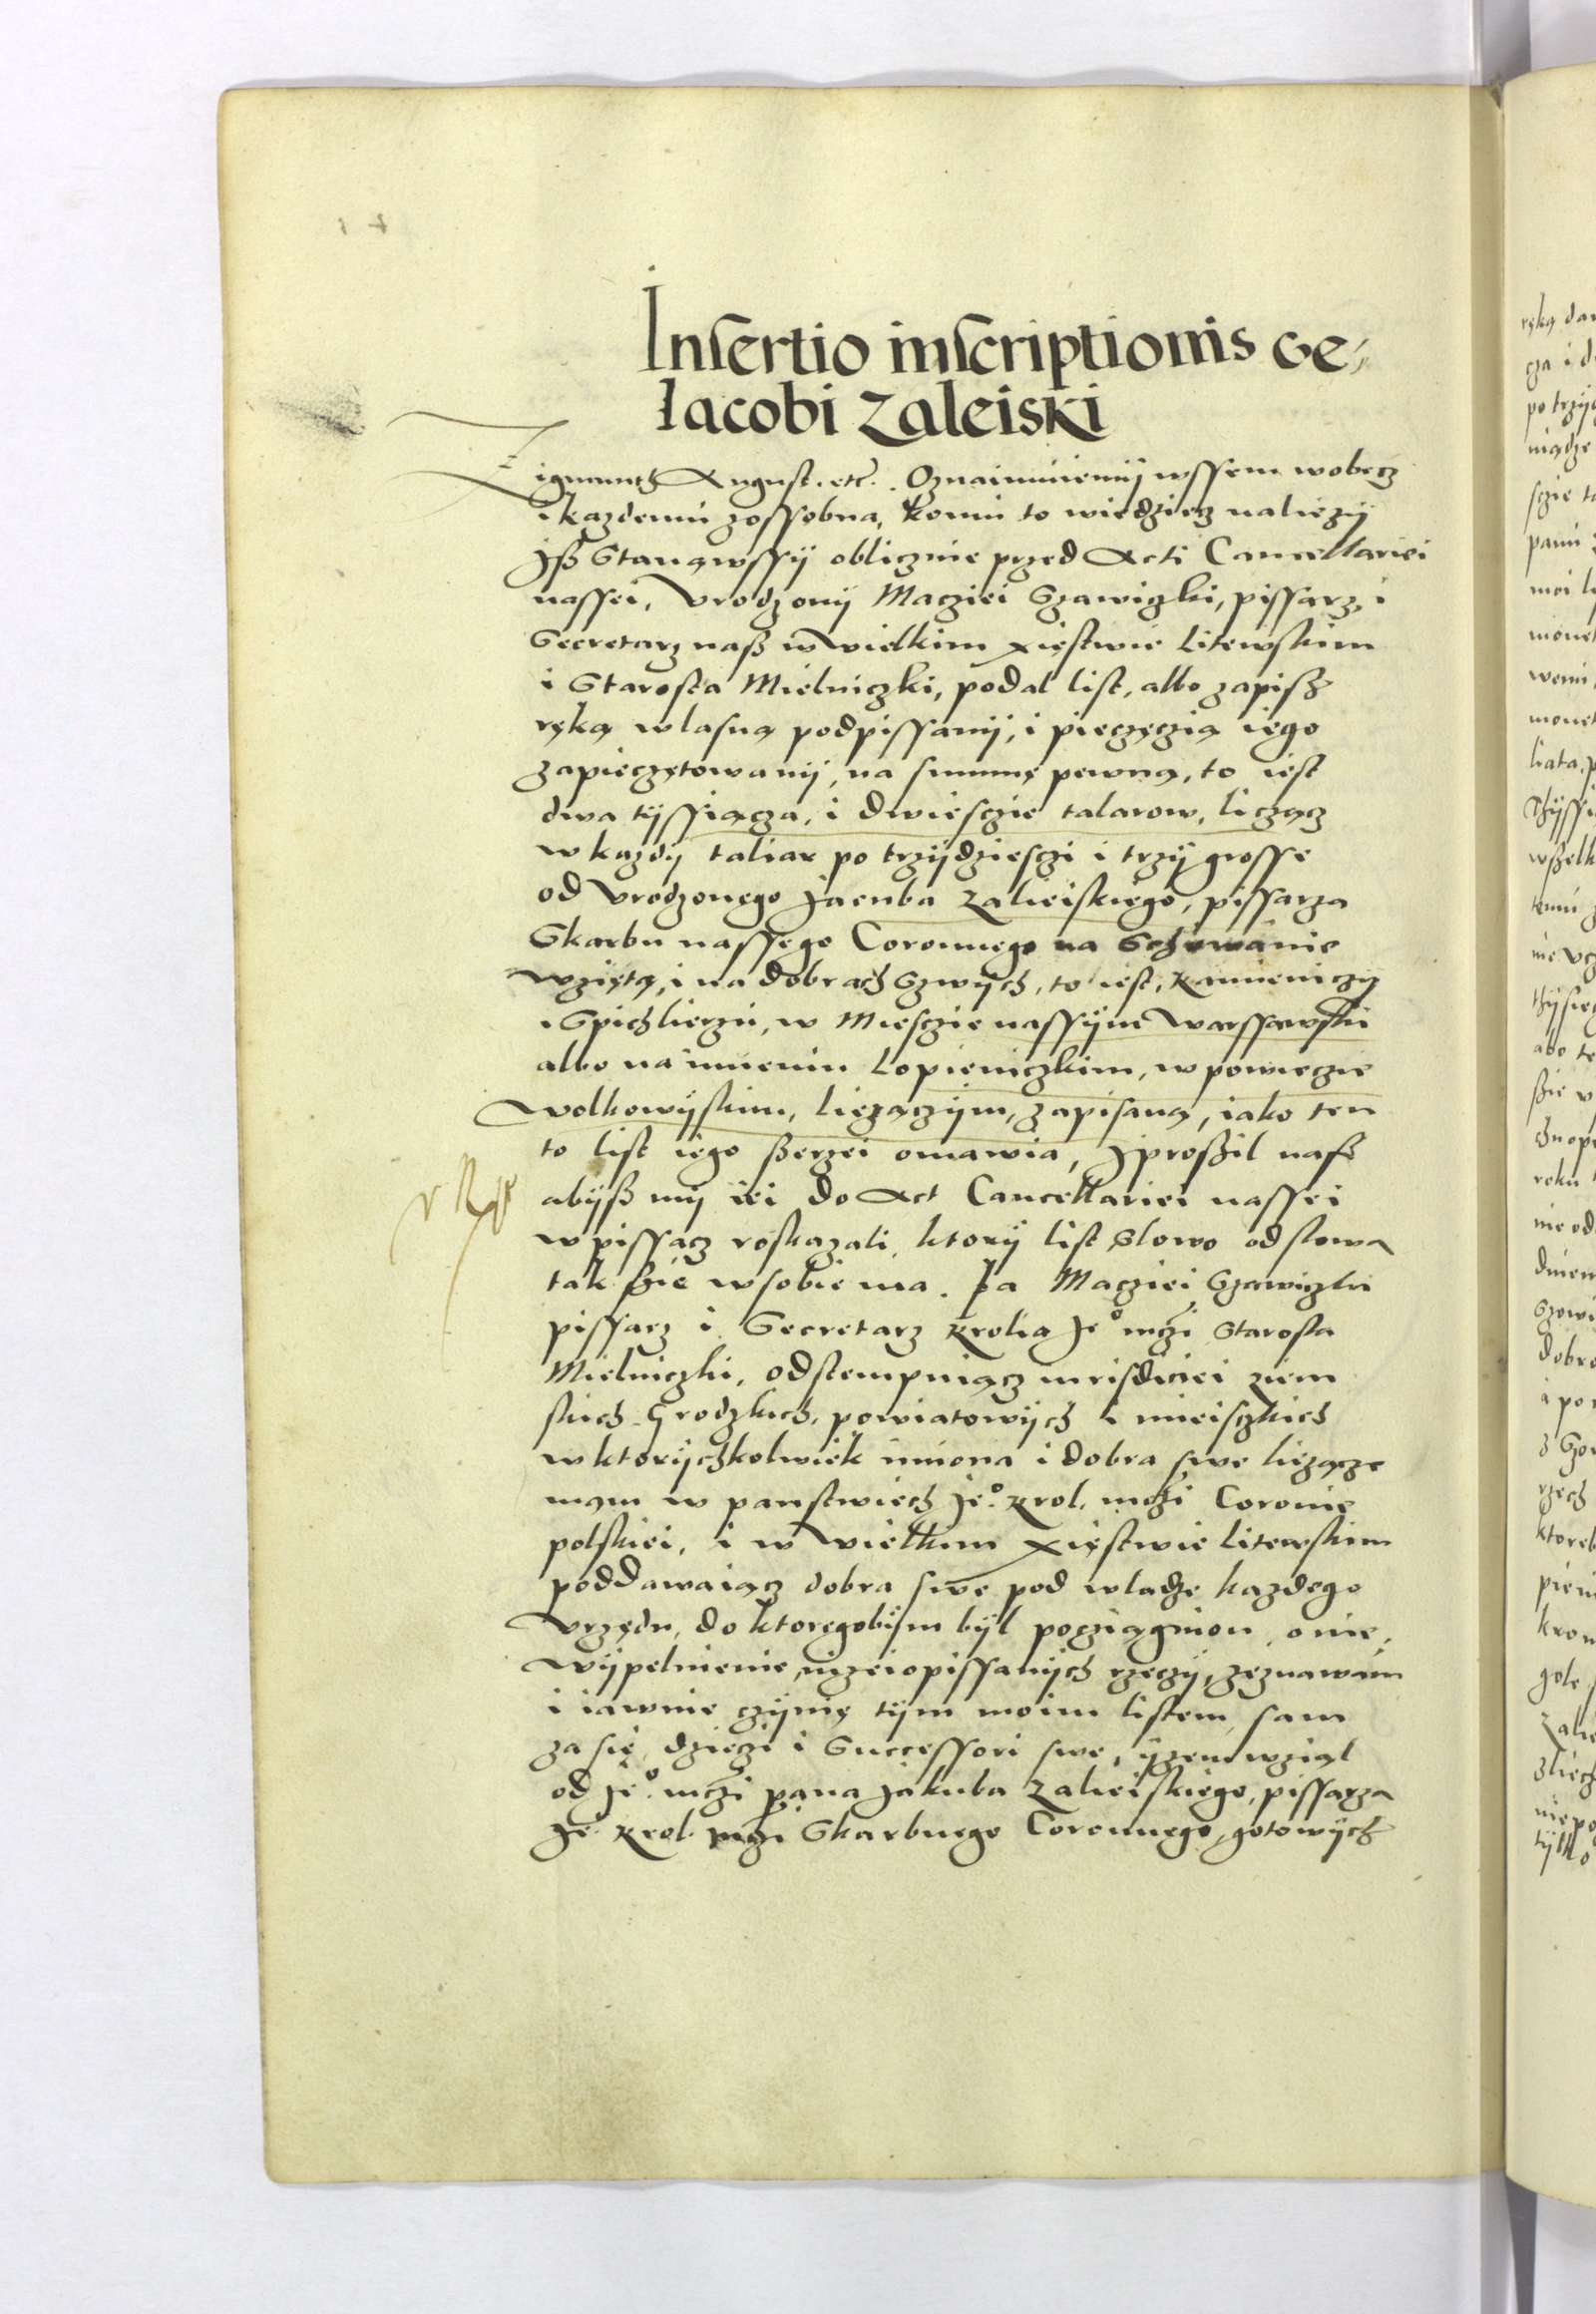 Insertio inscriptionis Ge,
Iacobi Zaleiski
Zigmunth August. etc. Oznaimuiemÿ wssem wobecz
i kazdemu zossobna, komu to wiedziecz naliezÿ
Jß Stanąwssÿ oblicznie przed Acti Cancellariei
nassei, Vrodzonÿ Macziei Szawiczki, pissarz, i
Secretarz naß w Wielkim Xięstwie Litewskim
i Starosta Mielniczki, podal list, albo zapisß
ręką wlasną podpissanÿ, i pieczęczią iego
zapieczętowanÿ, na summę pewną, to iest
dwa tÿssiącza, i dwiesczie talarow, licząc
w kazdÿ taliar po trzÿdziesczi i trzÿ grosse
od Vrodzonego Jacuba Zalieiskiego, pissarza
Skarbu nassego Coronnego na Schowanie
wziętą, i na dobrach Szwÿch, to iest, Kamieniczÿ
i Spichlierzu, w Miesczie nassÿm Warssawski
albo na imieniu Lopieniczkim, w powieczie
Wolkowÿskim, lieząćzÿm, zapisaną, iako ten
to list iego ßerzei omawia, J proßil naß
abÿß mÿ iei do Act Cancellariei nassei
wpissacz roskazali, ktorÿ list Slowo od slowa
tak ßie w sobie ma. Ja Macziei Szawiczki
pissarz i Secretarz Krolia Jeo mczi Starosta
Mielniczki, odstempuiącz iurisdiciei ziem
skich Grodzkich, powiatowÿch i mieisczkich
w ktorÿchkolwiek imiona i dobra swe liezącze
mąm w panstwiech Jeo Krol. mczi Coronie
polskiei, i w Wielkim Xięstwie Litewskim
poddawaiącz dobra swe pod wladze kazdego
Vrzędu, do ktoregobÿm bÿl poczięgnion, o nie
wÿpelnienie, nizeiopissanÿch rzeczÿ, zeznawam
i iawnie czÿnię tÿm moim listem, sam
za się, dzieczi i Successori swe, ÿzem wzial
od Jeo mczi pana Jakuba Zalieiskiego, pissarza
Je Krol. mczi Skarbnego Coronnego, gotowÿch